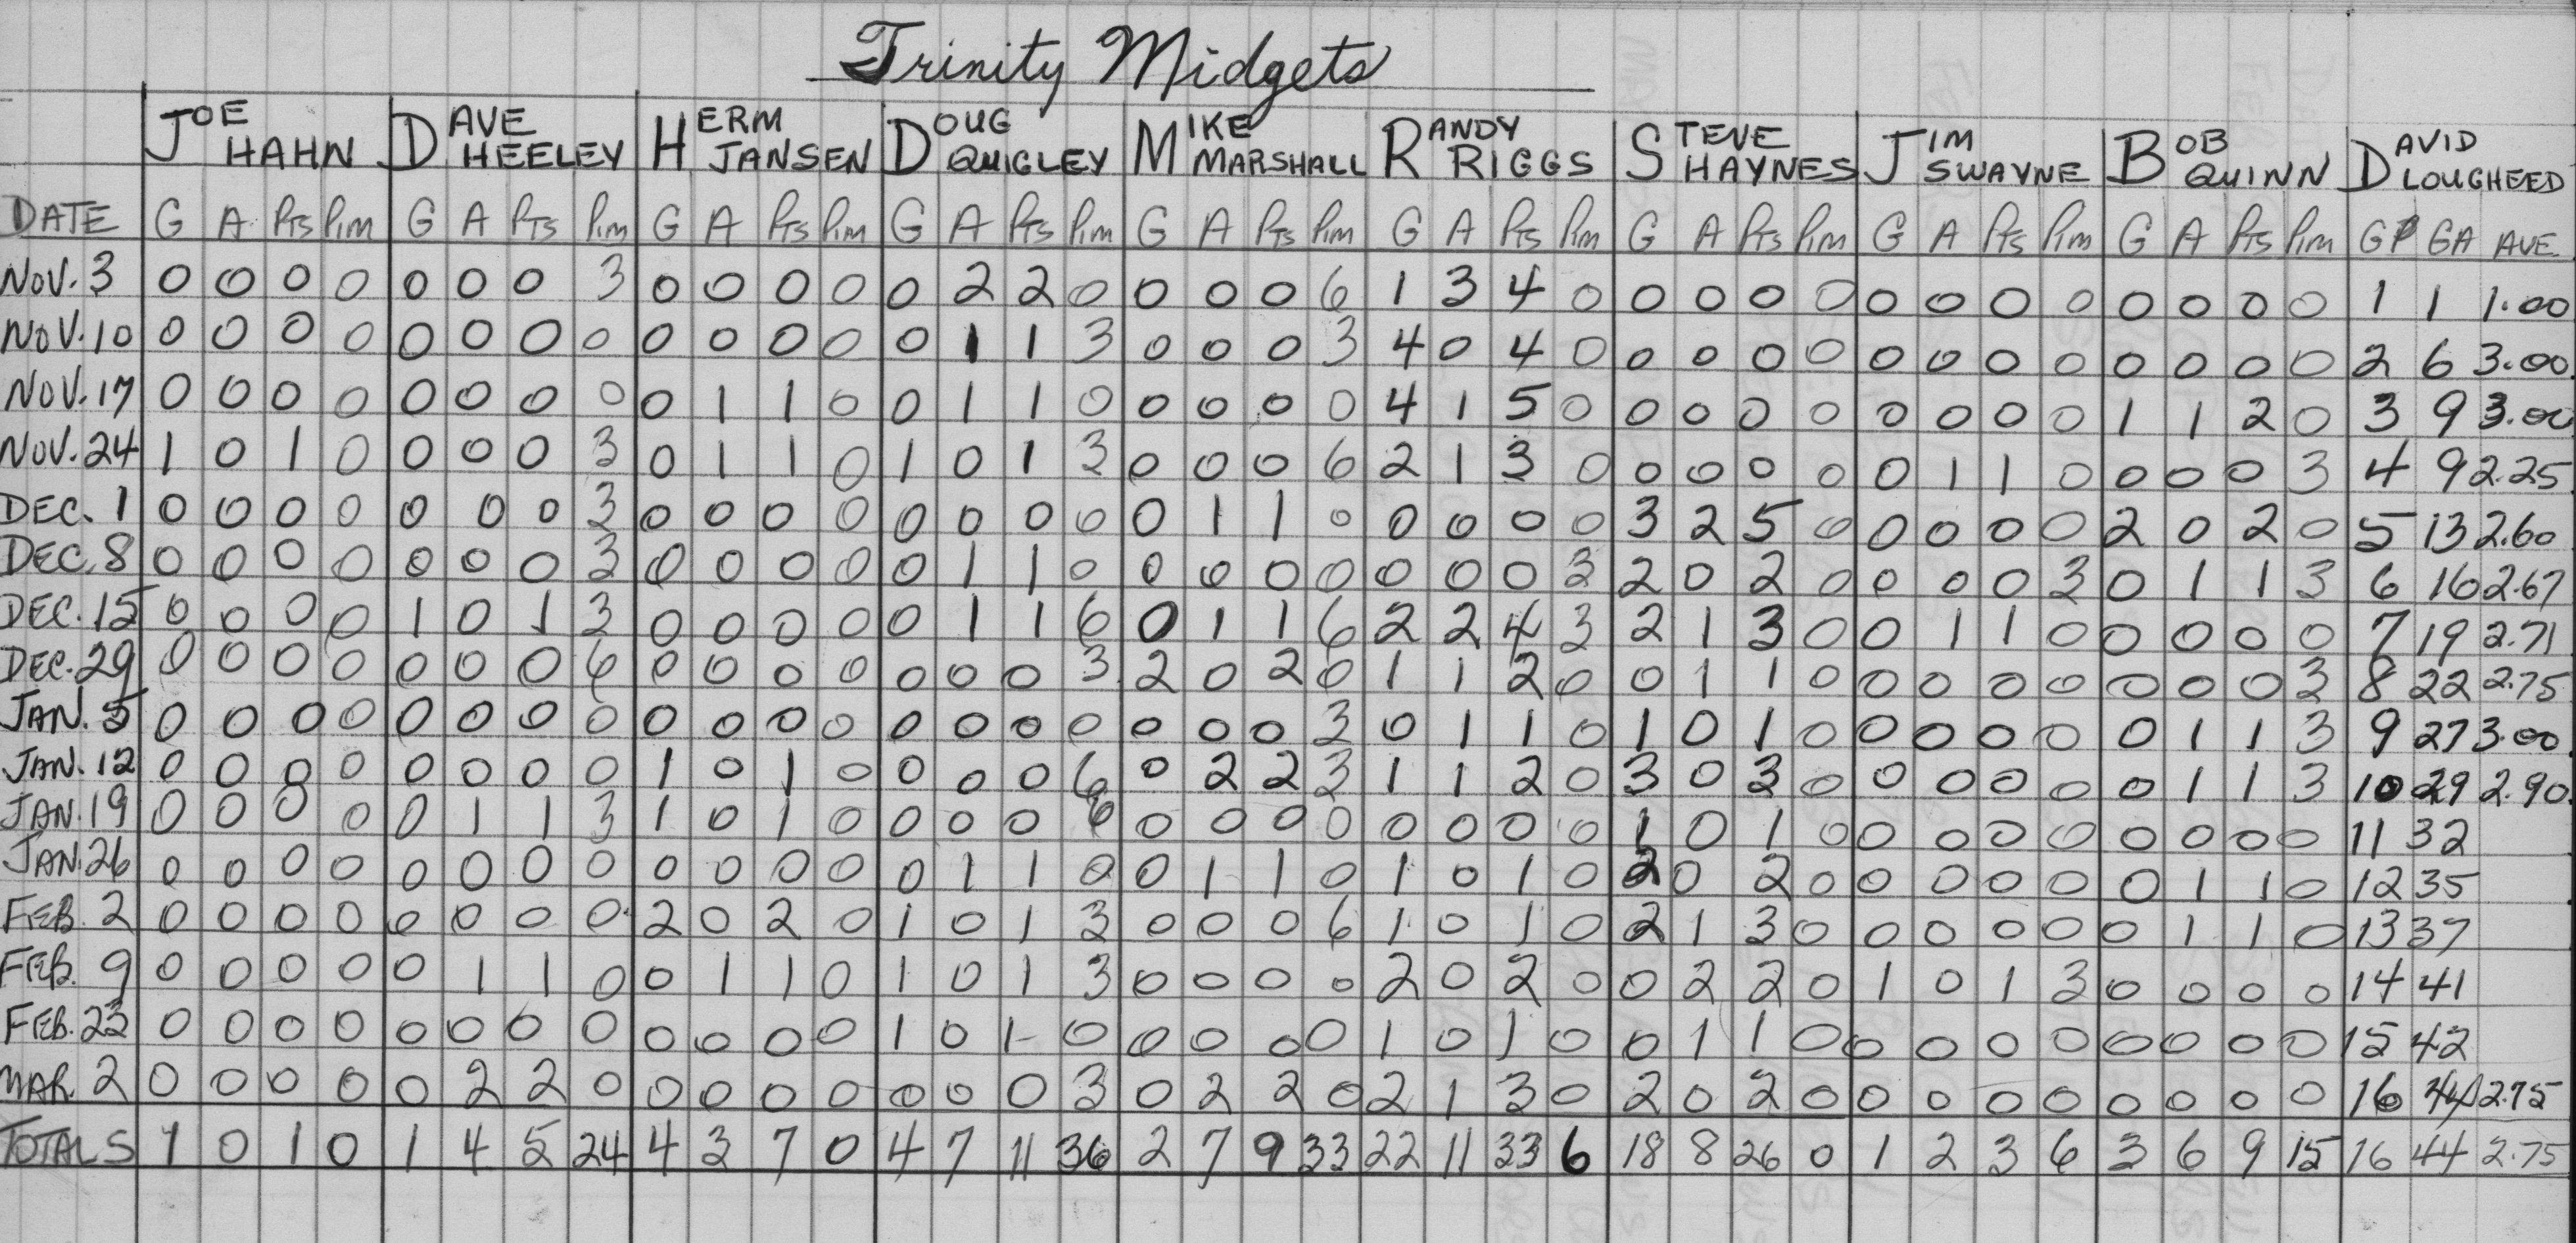 Trinity Midgets
JOE HAHN DAVE HEELEY HERM JANSEN DOUG QUIGLEY MIKE MARSHALL RANDY RIGGS STEVE HAYNES JIM SWAYNE BOB QUINN DAVID LOUGHEED
DATE G A PTS PIM G A PTS PIM G A PTS PIM G A PTS PIM G A PTS PIM G A PTS PIM G A PTS PIM G A PTS PIM G A PTS PIM GP GA AVE.
NOV. 3 0 0 0 0 0 0 0 3 0 0 0 0 0 2 2 0 0 0 0 6 1 3 4 0 0 0 0 0 0 0 0 0 0 0 0 0 1 1 1.00
NOV. 10 0 0 0 0 0 0 0 0 0 0 0 0 0 1 1 3 0 0 0 3 4 0 4 0 0 0 0 0 0 0 0 0 0 0 0 0 2 6 3.00
NOV. 17 0 0 0 0 0 0 0 0 0 1 1 0 0 1 1 0 0 0 0 0 4 1 5 0 0 0 0 0 0 0 0 0 1 1 2 0 3 9 3.00
NOV. 24 1 0 1 0 0 0 0 3 0 1 1 0 1 0 1 3 0 0 0 6 2 1 3 0 0 0 0 0 0 1 1 0 0 0 0 3 4 9 2.25
DEC. 1 0 0 0 0 0 0 0 3 0 0 0 0 0 0 0 0 0 1 1 0 0 0 0 0 3 2 5 0 0 0 0 0 2 0 2 0 5 13 2.60
DEC. 8 0 0 0 0 0 0 0 3 0 0 0 0 0 1 1 0 0 0 0 0 0 0 0 3 2 0 2 0 0 0 0 3 0 1 1 3 6 16 2.67
DEC. 15 0 0 0 0 1 0 1 3 0 0 0 0 0 1 1 6 0 1 1 6 2 2 4 3 2 1 3 0 0 1 1 0 0 0 0 0 7 19 2.71
DEC. 29 0 0 0 0 0 0 0 6 0 0 0 0 0 0 0 3 2 0 2 0 1 1 2 0 0 1 1 0 0 0 0 0 0 0 0 3 8 22 2.75
JAN. 5 0 0 0 0 0 0 0 0 0 0 0 0 0 0 0 0 0 0 0 3 0 1 1 0 1 0 1 0 0 0 0 0 0 1 1 3 9 27 3.00
JAN. 12 0 0 0 0 0 0 0 0 1 0 1 0 0 0 0 6 0 2 2 3 1 1 2 0 3 0 3 0 0 0 0 0 0 1 1 3 10 29 2.90
JAN. 19 0 0 0 0 0 1 1 3 1 0 1 0 0 0 0 6 0 0 0 0 0 0 0 0 1 0 1 0 0 0 0 0 0 0 0 0 11 32
JAN. 26 0 0 0 0 0 0 0 0 0 0 0 0 0 1 1 0 0 1 1 0 1 0 1 0 2 0 2 0 0 0 0 0 0 1 1 0 12 35
FEB. 2 0 0 0 0 0 0 0 0 2 0 2 0 1 0 1 3 0 0 0 6 1 0 1 0 2 1 3 0 0 0 0 0 0 1 1 0 13 37
FEB. 9 0 0 0 0 0 1 1 0 0 1 1 0 1 0 1 3 0 0 0 0 2 0 2 0 0 2 2 0 1 0 1 3 0 0 0 0 14 41
FEB. 23 0 0 0 0 0 0 0 0 0 0 0 0 1 0 1 0 0 0 0 0 1 0 1 0 0 1 1 0 0 0 0 0 0 0 0 0 15 42
MAR. 2 0 0 0 0 0 2 2 0 0 0 0 0 0 0 0 3 0 2 2 0 2 1 3 0 2 0 2 0 0 0 0 0 0 0 0 0 16 44 2.75
TOTALS 1 0 1 0 1 4 5 24 4 3 7 0 4 7 11 36 2 7 9 33 22 11 33 6 18 8 26 0 1 2 3 6 3 6 9 15 16 44 2.75